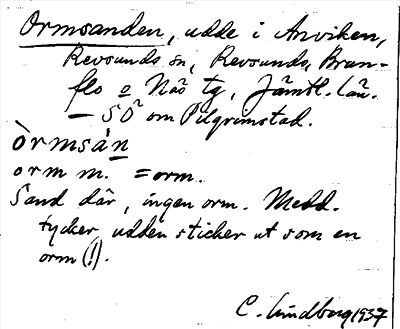 Ormsanden, udde i Anviken,
Revsunds sn, Revsunds, Brun-
flo o Näs tg, Jämtl. län.
— SÖ om Pilgrimstad.
òrmsàn
orm m. = orm.
Sand där, ingen orm. Medd.
tycker udden sticker ut som en
orm (!).
C. Lindberg 1937